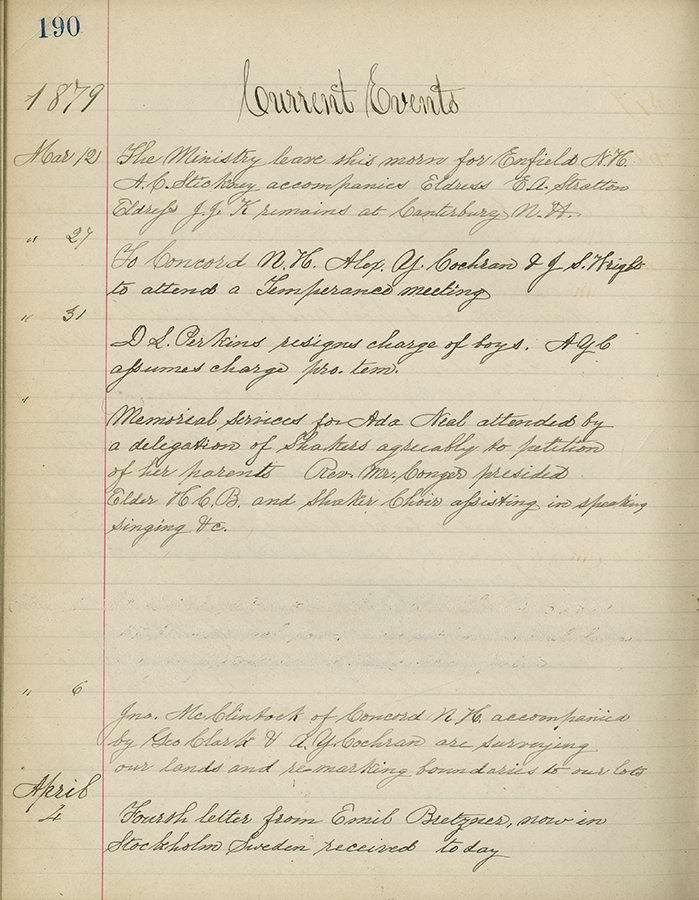 190
1879 Current Events
Mar 12 The Ministry leave this morn for Enfield N.H.
A. C. Stickney accompanies Eldress E. A. Stratton
Eldress J. J. K remains at Canterbury N.H.
" 27 To Concord N.H. Alex. Y. Cochran & J S. Wright
to attend a Temperance meeting
" 31
D S. Perkins resigns charge of boys. A Y C
assumes charge pro. tem.
"
Memorial Services for Ada Neal attended by
a delegation of Shakers agreeably to petition
of her parents Rev. Mr. Conger presided
Elder H. C. B. and Shaker Choir assisting in speaking
singing &c.
" 6
Jno. McClintock of Concord N.H. accompanied
by Geo Clark & A. Y Cochran are surveying
our lands and re-marking boundaries to our lots
April
4 Fourth letter from Emil Bretzner, now in
Stockholm Sweden received today